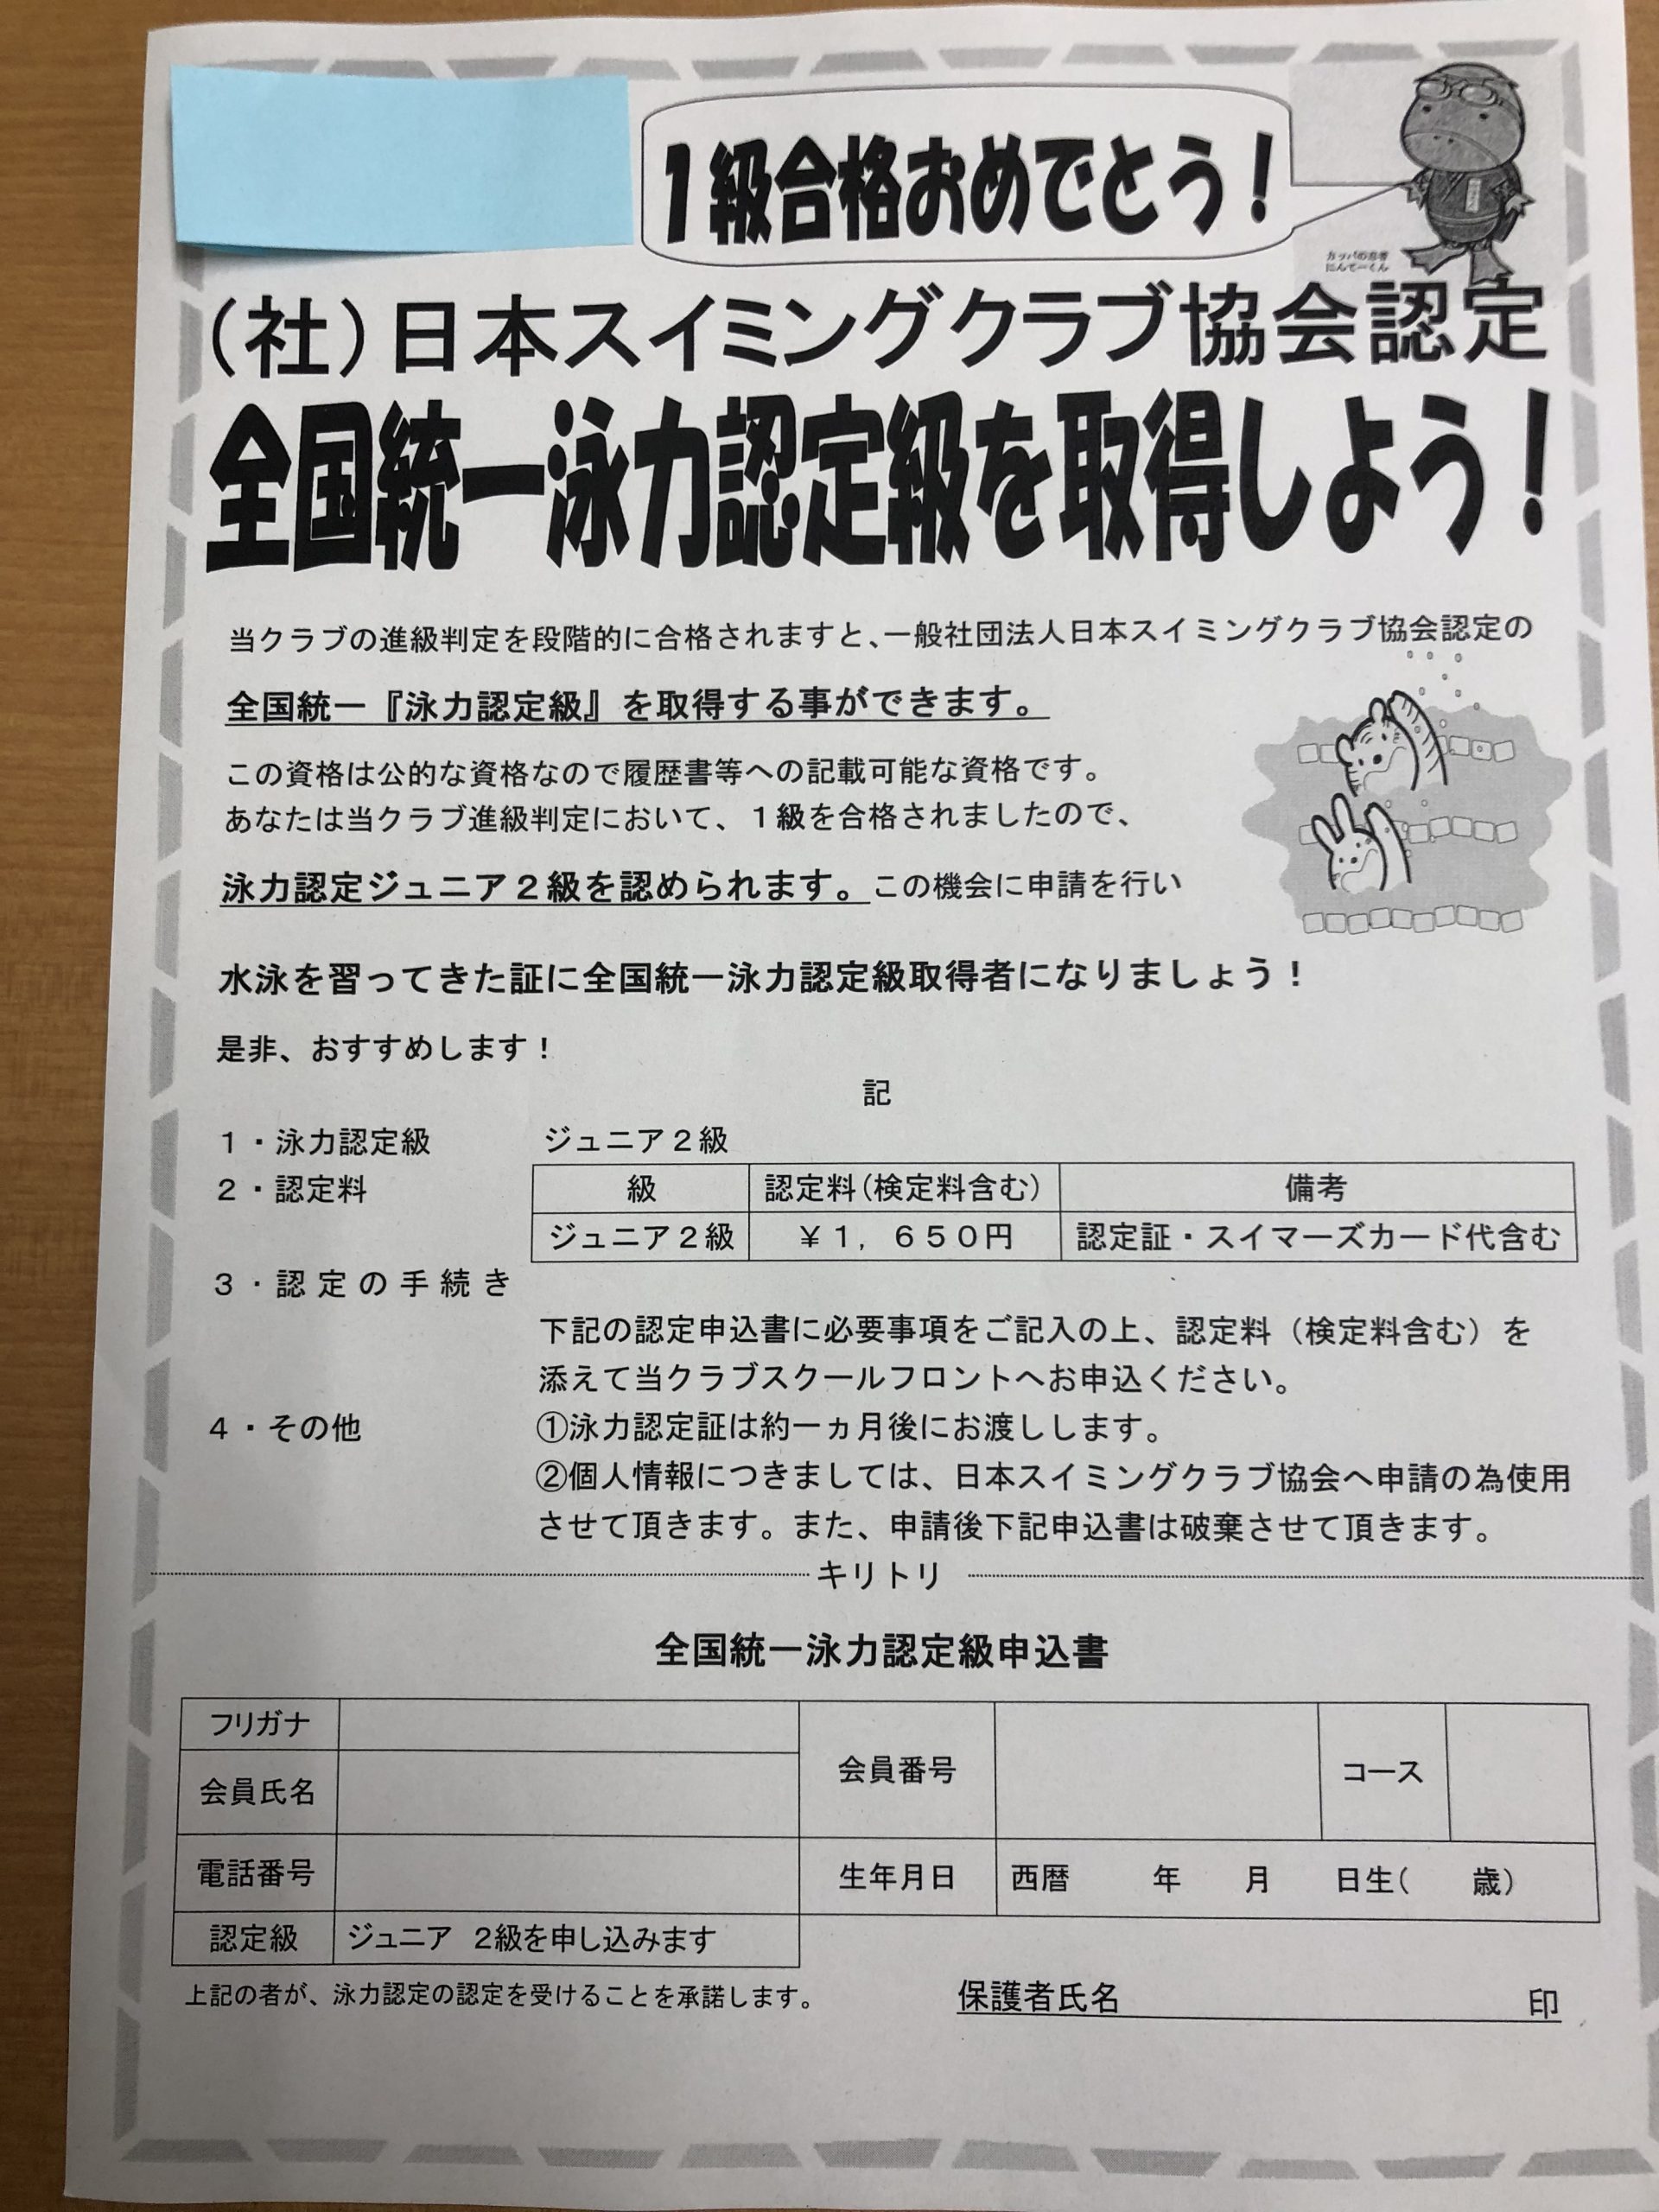 1級合格おめでとう！
カッパの忍者
にんてーくん
（社）日本スイミングクラブ協会認定
全国統一泳力認定級を取得しよう！
当クラブの進級判定を段階的に合格されますと、一般社団法人日本スイミングクラブ協会認定の
全国統一『泳力認定級』を取得する事ができます。
この資格は公的な資格なので履歴書等への記載可能な資格です。
あなたは当クラブ進級判定において、１級を合格されましたので、
泳力認定ジュニア２級を認められます。この機会に申請を行い
水泳を習ってきた証に全国統一泳力認定級取得者になりましょう！
是非、おすすめします！
記
１・泳力認定級 ジュニア２級
２・認定料 級 認定料（検定料含む） 備考
ジュニア２級 ￥１，６５０円 認定証・スイマーズカード代含む
３・認定の手続き
下記の認定申込書に必要事項をご記入の上、認定料（検定料含む）を
添えて当クラブスクールフロントへお申込ください。
４・その他 ①泳力認定証は約一ヵ月後にお渡しします。
②個人情報につきましては、日本スイミングクラブ協会へ申請の為使用
させて頂きます。また、申請後下記申込書は破棄させて頂きます。
キリトリ
全国統一泳力認定級申込書
フリガナ
会員氏名 会員番号 コース
電話番号 生年月日 西暦 年 月 日生（ 歳）
認定級 ジュニア 2級を申し込みます
上記の者が、泳力認定の認定を受けることを承諾します。 保護者氏名 印